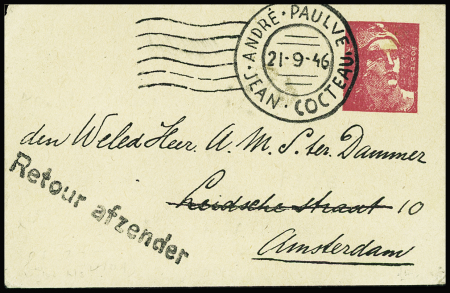 ANDRÉ · PAULVÉ
21-9-46
JEAN · COCTEAU
den Weled Heer A. M. S. ter. Dammer
Leidsche straat 10
Amsterdam
Retour afzender